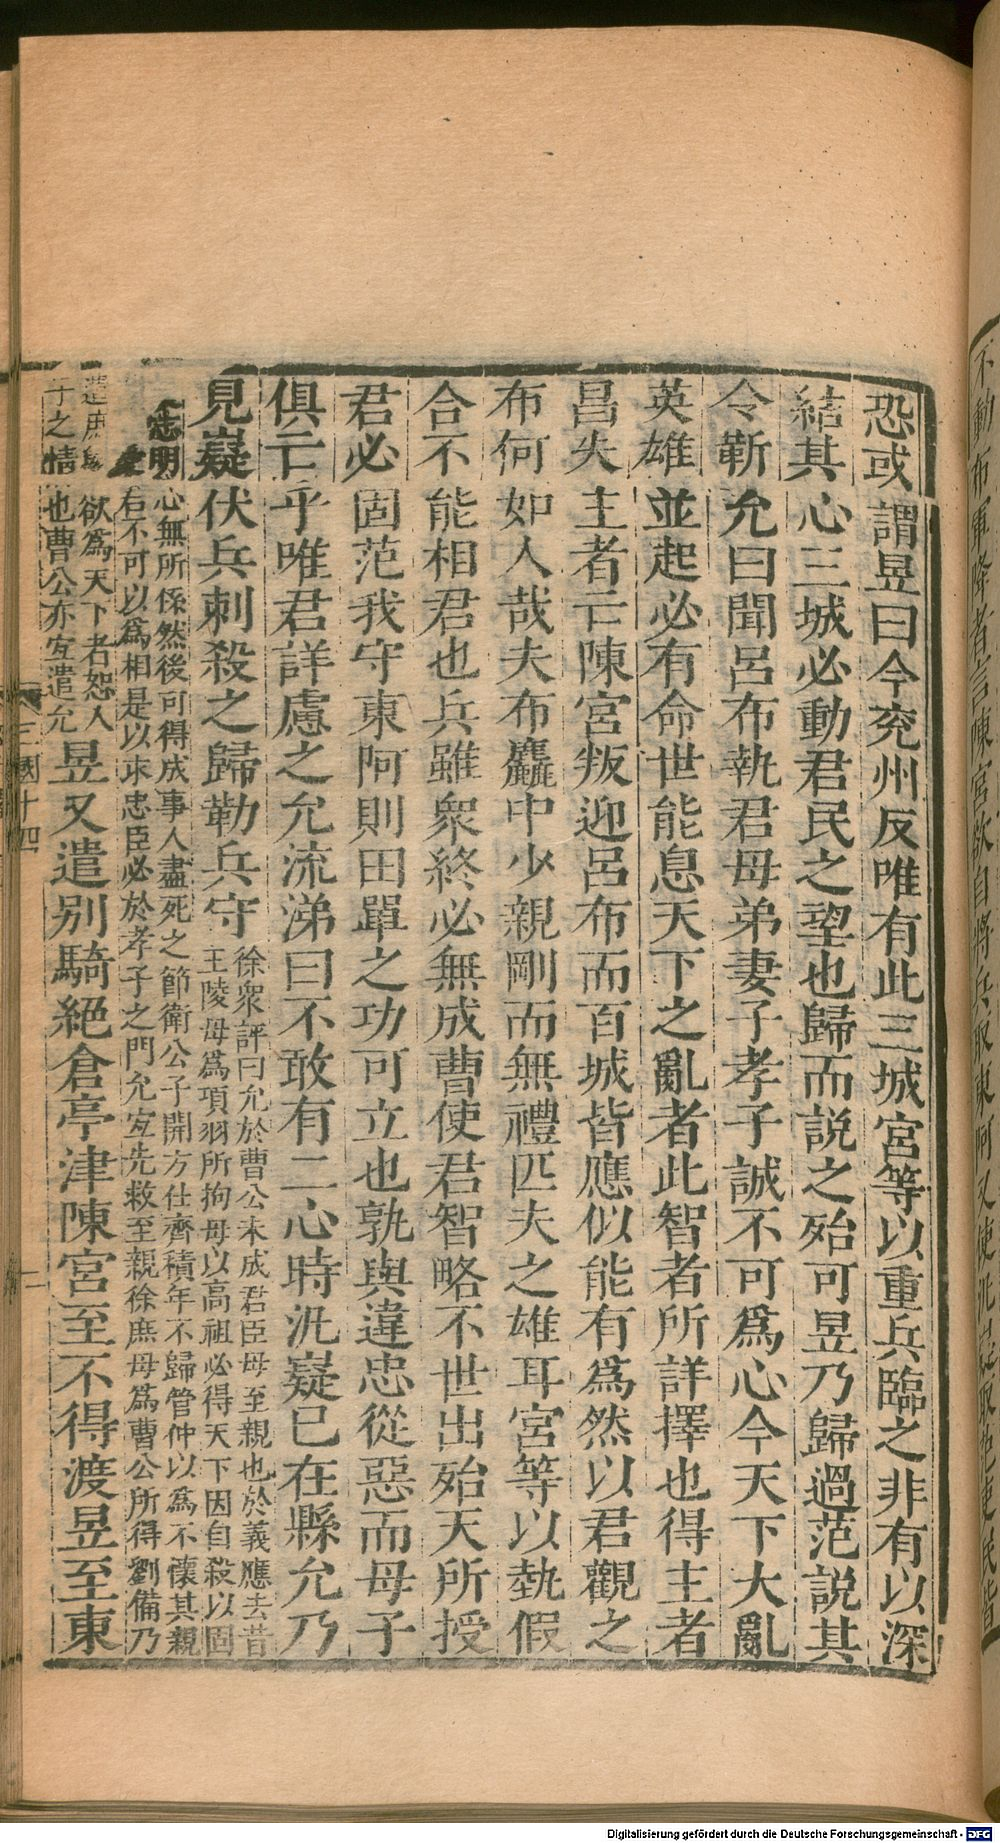 恐或謂昱曰今兗州反唯有此三城宮等以重兵臨之非有以深
結其心三城必動君民之望也歸而說之殆可昱乃歸過范說其
令靳允曰聞呂布執君母弟妻子孝子誠不可爲心今天下大亂
英雄並起必有命世能息天下之亂者此智者所詳擇也得主者
昌失主者亡陳宮叛迎呂布而百城皆應似能有爲然以君觀之
布何如人哉夫布麤中少親剛而無禮匹夫之雄耳宮等以埶假
合不能相君也兵雖衆終必無成曹使君智略不世出殆天所授
君必固范我守東阿則田單之功可立也孰與違忠從惡而母子
俱亡乎唯君詳慮之允流涕曰不敢有二心時汎嶷已在縣允乃
見嶷伏兵刺殺之歸勒兵守
徐衆評曰允於曹公未成君臣母至親也於義應去昔
王陵母爲項羽所拘母以高祖必得天下因自殺以固
志明心無所係然後可得成事人盡死之節衛公子開方仕齊積年不歸管仲以爲不懷其親
君不可以爲相是以求忠臣必於孝子之門允宐先救至親徐庶母爲曹公所得劉備乃
遣庶歸欲爲天下者恕人
子之情也曹公亦宐遣允
昱又遣别騎絕倉亭津陳宮至不得渡昱至東
三國十四
不動布軍降者言陳宮欲自將兵取東阿又使汎嶷取范吏民皆
Digitalisierung gefördert durch die Deutsche Forschungsgemeinschaft - DFG